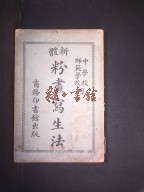 新體
中學校
師範學校
粉書寫生法
商務印書館出版